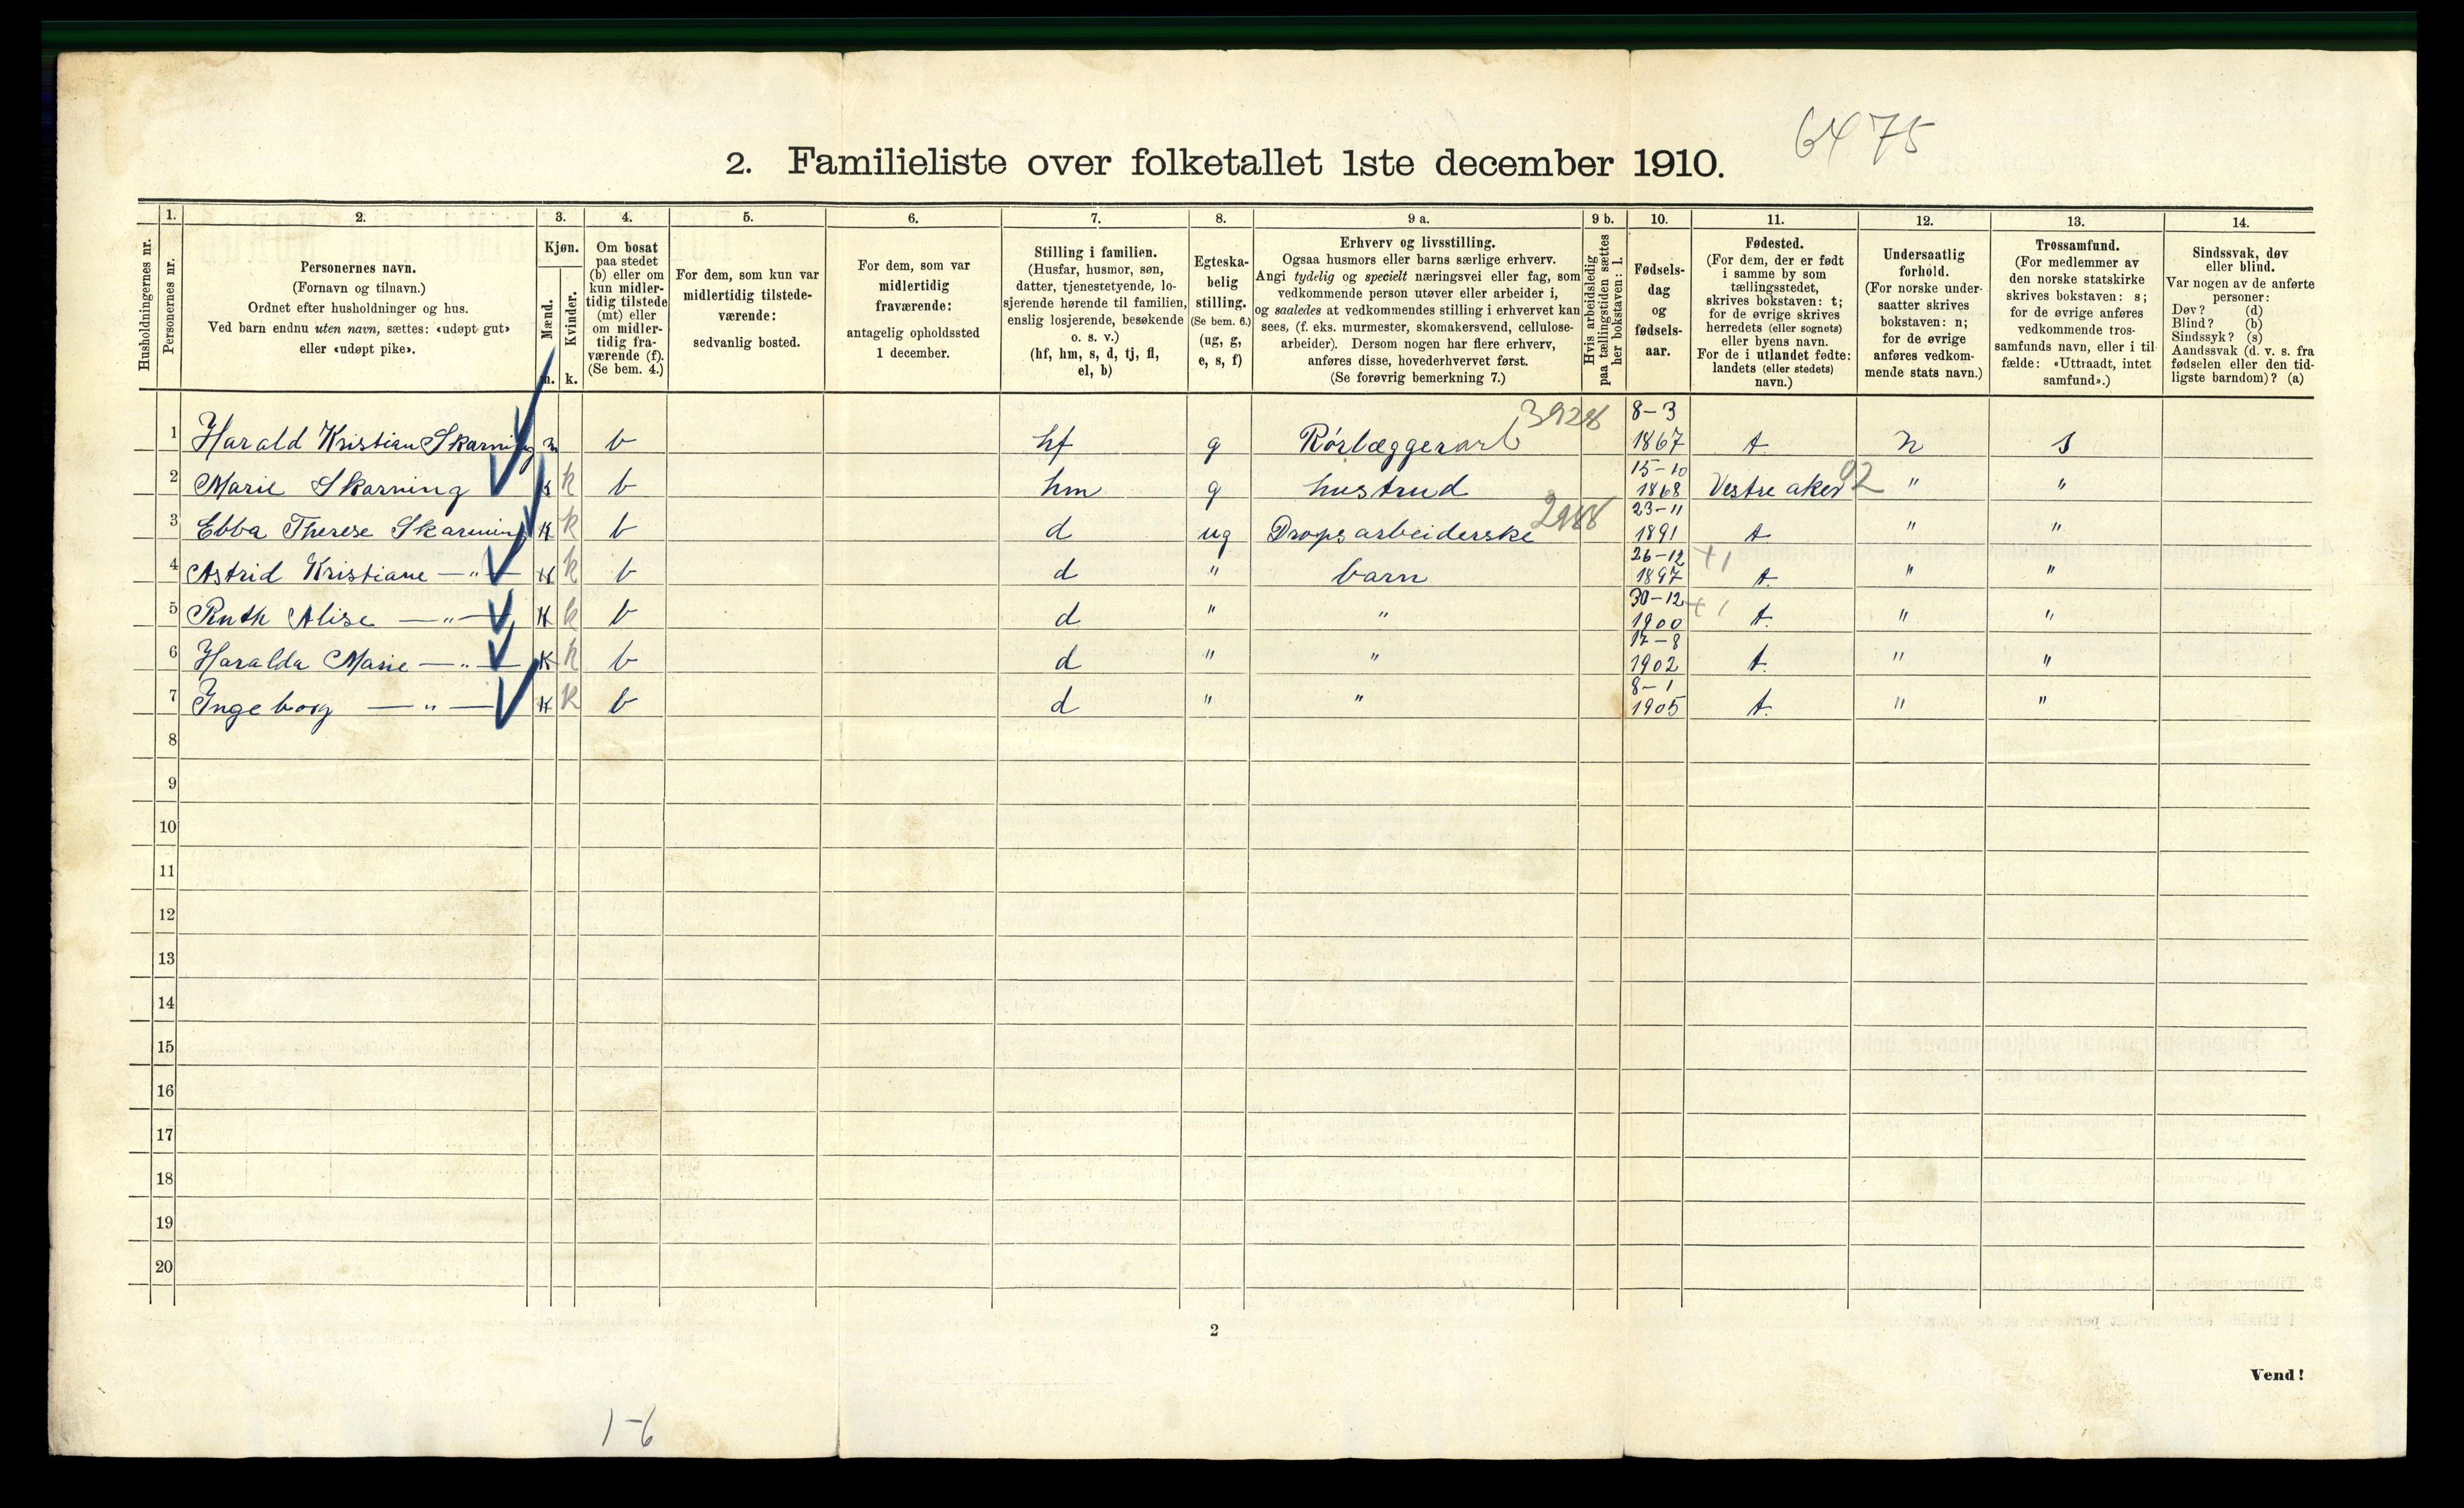 6475
2. Familieliste over folketallet 1ste december 1910.
Husholdningernes nr.
1. Personernes nr.
2. Personernes navn.
(Fornavn og tilnavn.)
Ordnet efter husholdninger og hus.
Ved barn endnu uten navn, sættes: «udøpt gut»
eller «udøpt pike».
3. Kjøn.
Mænd. m.
Kvinder. k.
4. Om bosat
paa stedet
(b) eller om
kun midler-
tidig tilstede
(mt) eller
om midler-
tidig fra-
værende (f).
(Se bem. 4.)
5. For dem, som kun var
midlertidig tilstede-
værende:
sedvanlig bosted.
6. For dem, som var
midlertidig
fraværende:
antagelig opholdssted
1 december.
7. Stilling i familien.
(Husfar, husmor, søn,
datter, tjenestetyende, lo-
sjerende hørende til familien,
enslig losjerende, besøkende
o. s. v.)
(hf, hm, s, d, tj, fl,
el, b)
8. Egteska-
belig
stilling.
(Se bem. 6.)
(ug, g,
e, s, f)
9 a. Erhverv og livsstilling.
Ogsaa husmors eller barns særlige erhverv.
Angi tydelig og specielt næringsvei eller fag, som
vedkommende person utøver eller arbeider i,
og saaledes at vedkommendes stilling i erhvervet kan
sees, (f. eks. murmester, skomakersvend, cellulose-
arbeider). Dersom nogen har flere erhverv,
anføres disse, hovederhvervet først.
(Se forøvrig bemerkning 7.)
9 b. Hvis arbeidsledig
paa tællingstiden sættes
her bokstaven: l.
10. Fødsels-
dag
og
fødsels-
aar.
11. Fødested.
(For dem, der er født
i samme by som
tællingsstedet,
skrives bokstaven: t;
for de øvrige skrives
herredets (eller sognets)
eller byens navn.
For de i utlandet fødte:
landets (eller stedets)
navn.)
12. Undersaatlig
forhold.
(For norske under-
saatter skrives
bokstaven: n;
for de øvrige
anføres vedkom-
mende stats navn.)
13. Trossamfund.
(For medlemmer av
den norske statskirke
skrives bokstaven: s;
for de øvrige anføres
vedkommende tros-
samfunds navn, eller i til-
fælde: «Uttraadt, intet
samfund».)
14. Sindssvak, døv
eller blind.
Var nogen av de anførte
personer:
Døv? (d)
Blind? (b)
Sindssyk? (s)
Aandssvak (d. v. s. fra
fødselen eller den tid-
ligste barndom)? (a)
1 Harald Kristian Skarning m b hf g Rørlæggerarb 8-3 1867 t n s
2 Marie Skarning k b hm g hustrud 15-10 1868 Vestre aker 92 " "
3 Ebba Therese Skarning k b d ug Dropsarbeiderske 23-11 1891 t " "
4 Astrid Kristiane —"— k b d " barn 26-12 1897 +1 t. " "
5 Ruth Alise —"— k b d " " 30-12 1900 +1 t. " "
6 Haralda Marie —"— k b d " " 17-8 1902 t. " "
7 Ingeborg —"— k b d " " 8-1 1905 t. " "
8
9
10
11
12
13
14
15
16
17
18
19
20
2
Vend!
1-6